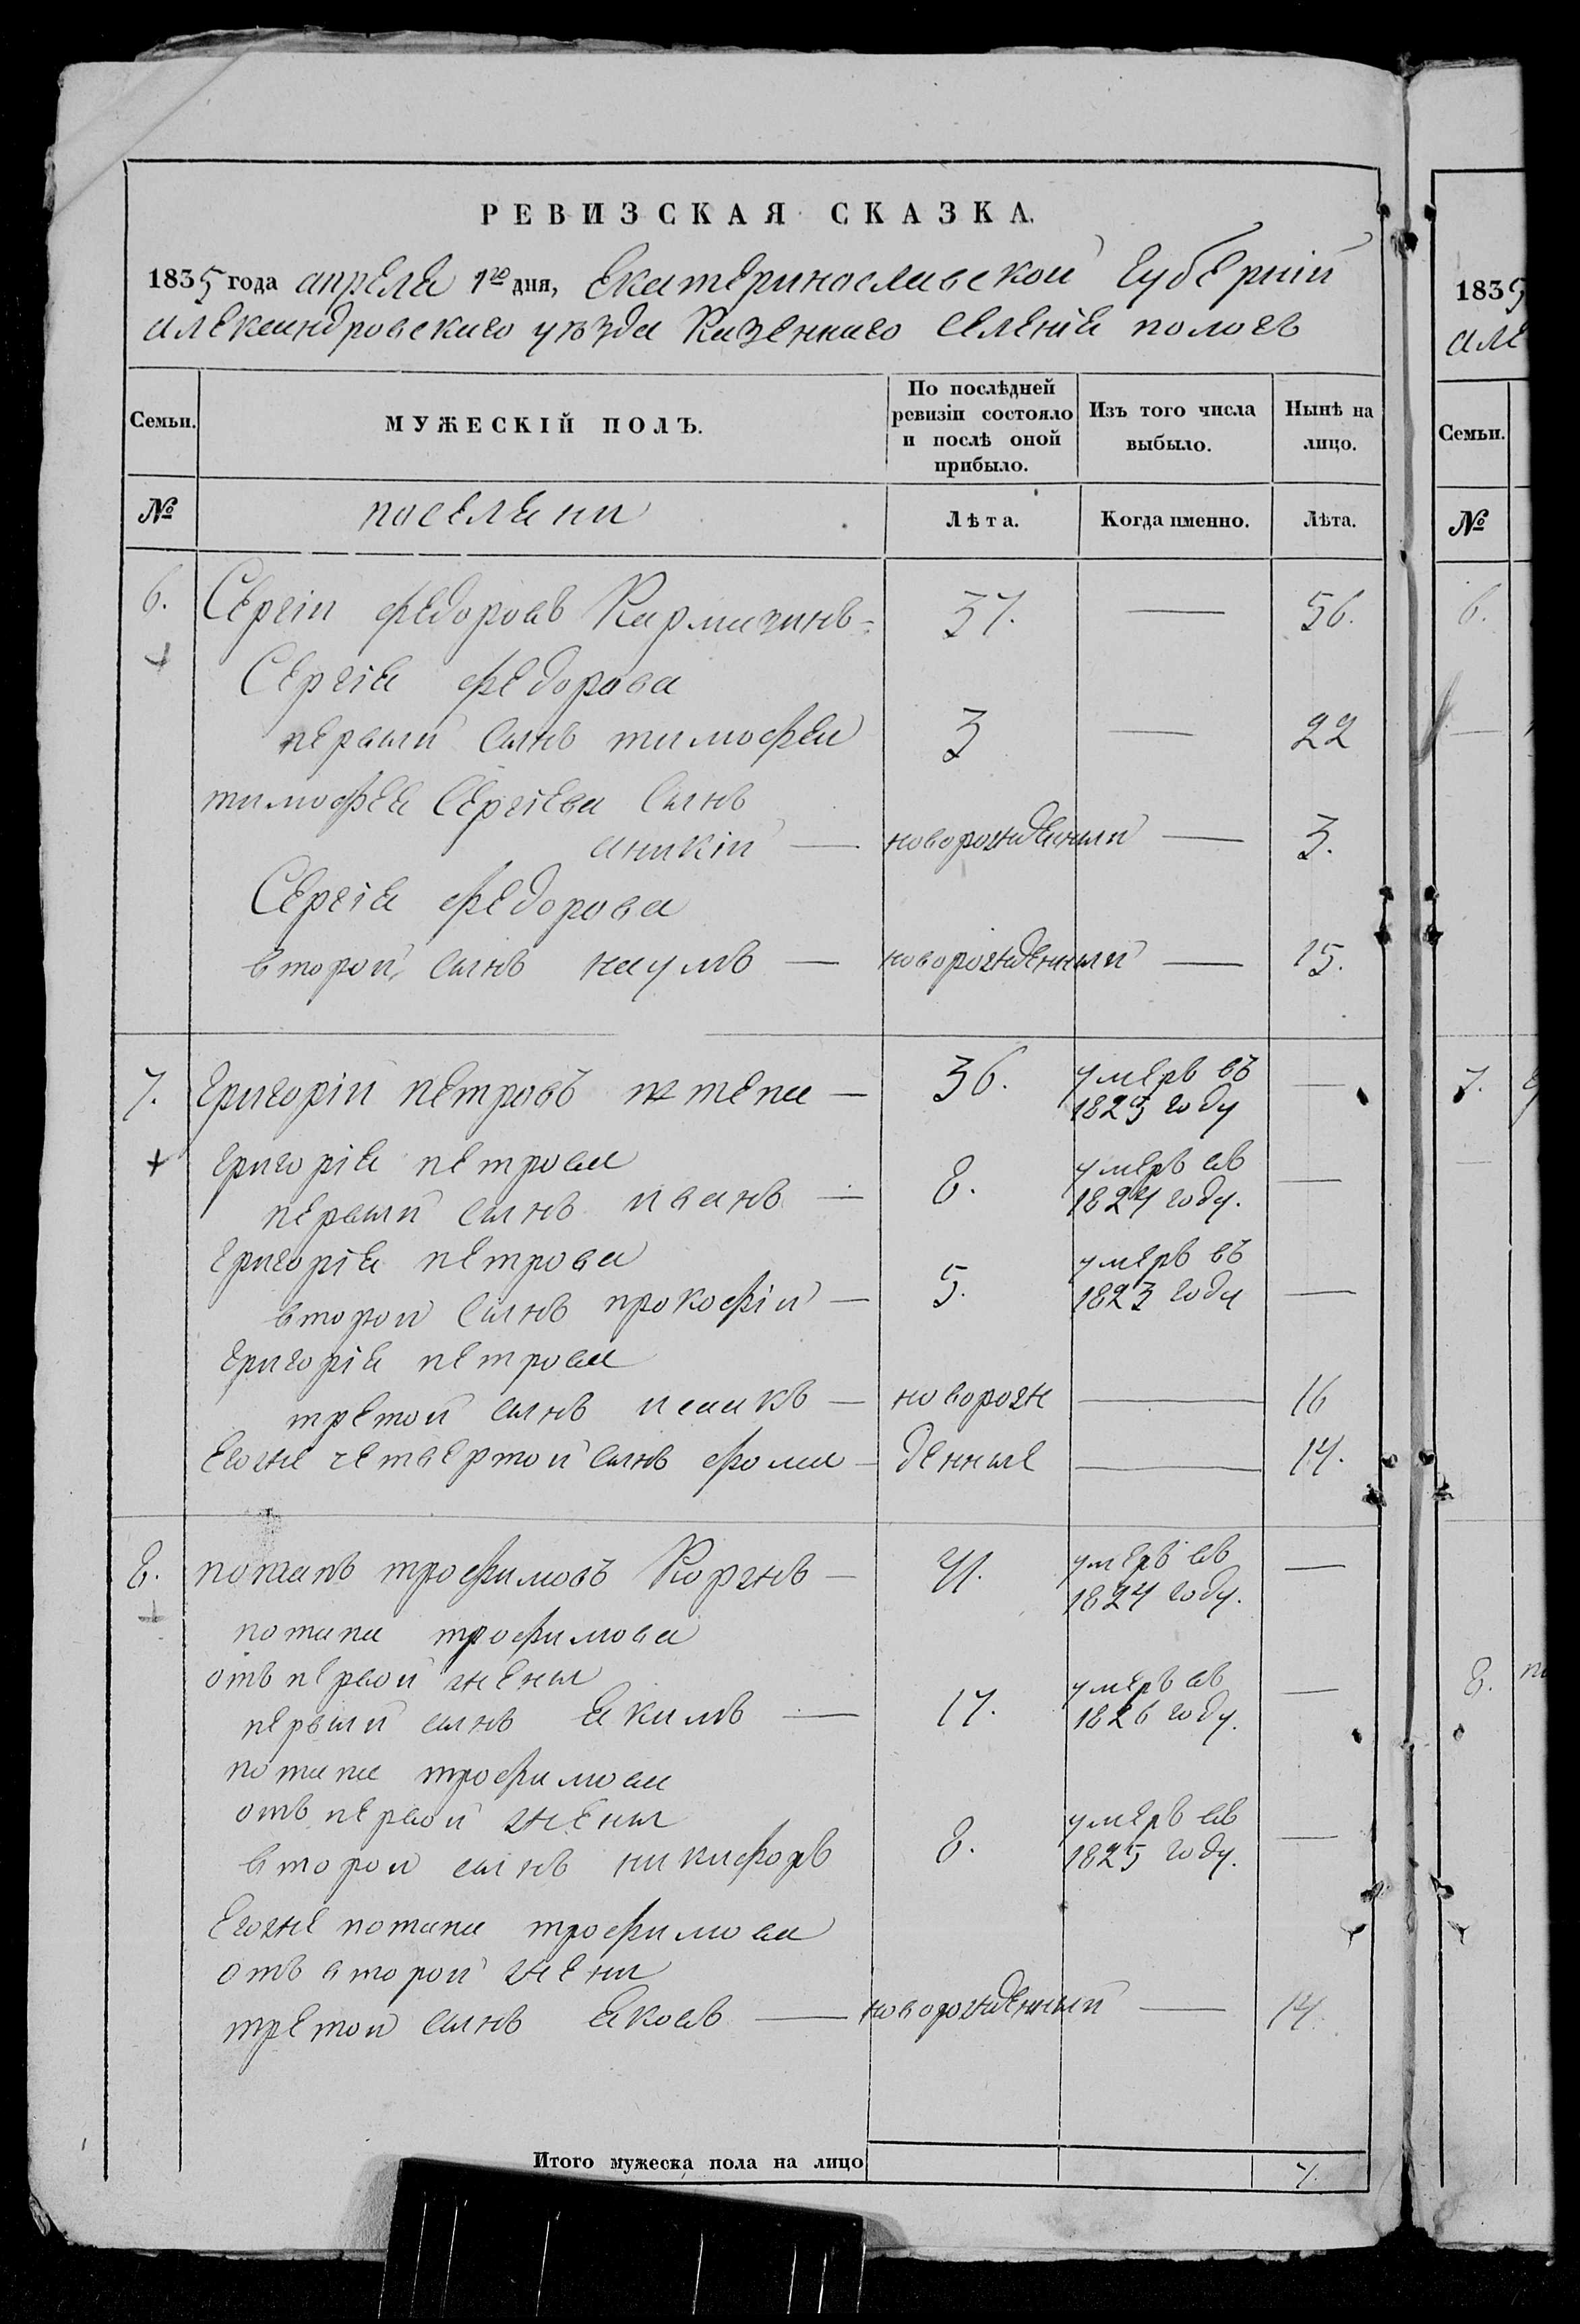 РЕВИЗСКАЯ СКАЗКА.
1835 года апреля 1го дня, Екатеринославской губерніи
александровскаго уѣзда казеннаго селенія пологъ
Семьи.
МУЖЕСКІЙ ПОЛЪ.
По послѣдней ревизіи состояло и послѣ оной прибыло.
Изъ того числа выбыло.
Нынѣ на лицо.
№
поселяни
Лѣта.
Когда именно.
Лѣта.
6. Сергій федоровъ Кармазинъ 37. — 56.
Сергія федорова
первый сынъ тимофей 3 — 22
тимофея Сергіева сынъ
аникій — новорожденный — 3.
Сергія федорова
второй сынъ наумъ — новорожденный — 15.
7. григорій петровъ — 36. умеръ въ 1825 году —
григорія петрова
первый сынъ иванъ — 8. умеръ въ 1824 году. —
григорія петрова
второй сынъ прокофій — 5. умеръ въ 1823 году —
григорія петрова
третой сынъ исакъ — новорож — 16
егоже четвертой сынъ фома — денные — 14.
8. потапъ трофимовъ Коржъ — 41. умеръ въ 1824 году. —
потапа трофимова
отъ первой жены
первый сынъ якимъ — 17. умеръ въ 1826 году. —
потапа трофимова
отъ первой жены
второй сынъ никифоръ 8. умеръ въ 1825 году. —
егоже потапа трофимова
отъ второй жены
третой сынъ яковъ — новорожденный — 14.
Итого мужеска пола на лицо 7.
1835
але
Семьи.
№
6.
7.
8. по